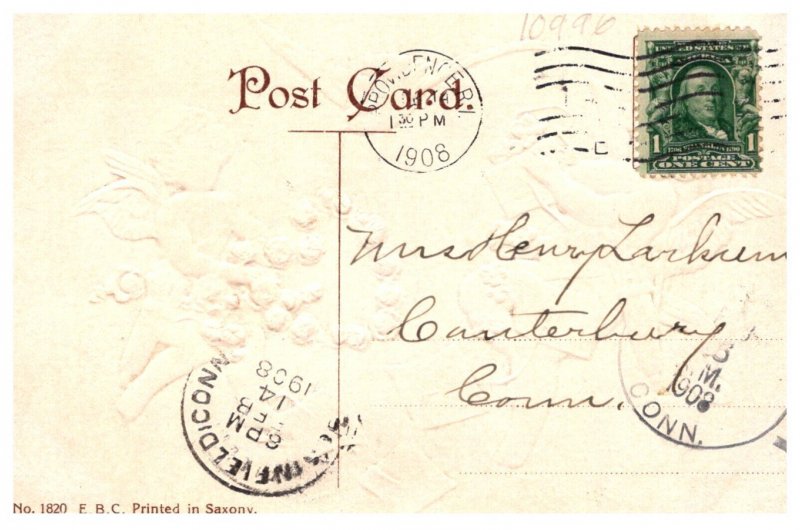 10996
Post Card.
PROVIDENCE R.I.
1 30 PM
1908
UNITED STATES
1 1
POSTAGE
ONE CENT
Mrs Henry Larkum
Canterbury
Conn.
CONN.
M.
1908
FIELD CONN
8 PM
FEB
14
1908
No. 1820 E. B. C. Printed in Saxony.